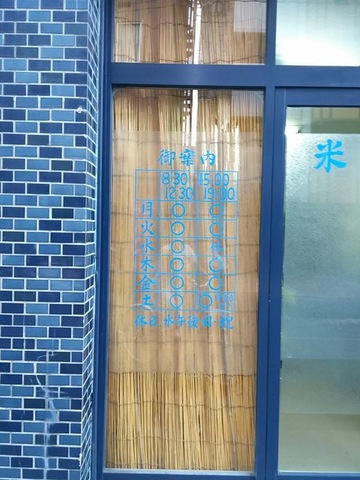 御案内
8:30 15:00
12:30 19:00
月 ○ ○
火 ○ ○
水 ○
木 ○ ○
金 ○ ○
土 ○ ○
休日 水午後 日・祝
米